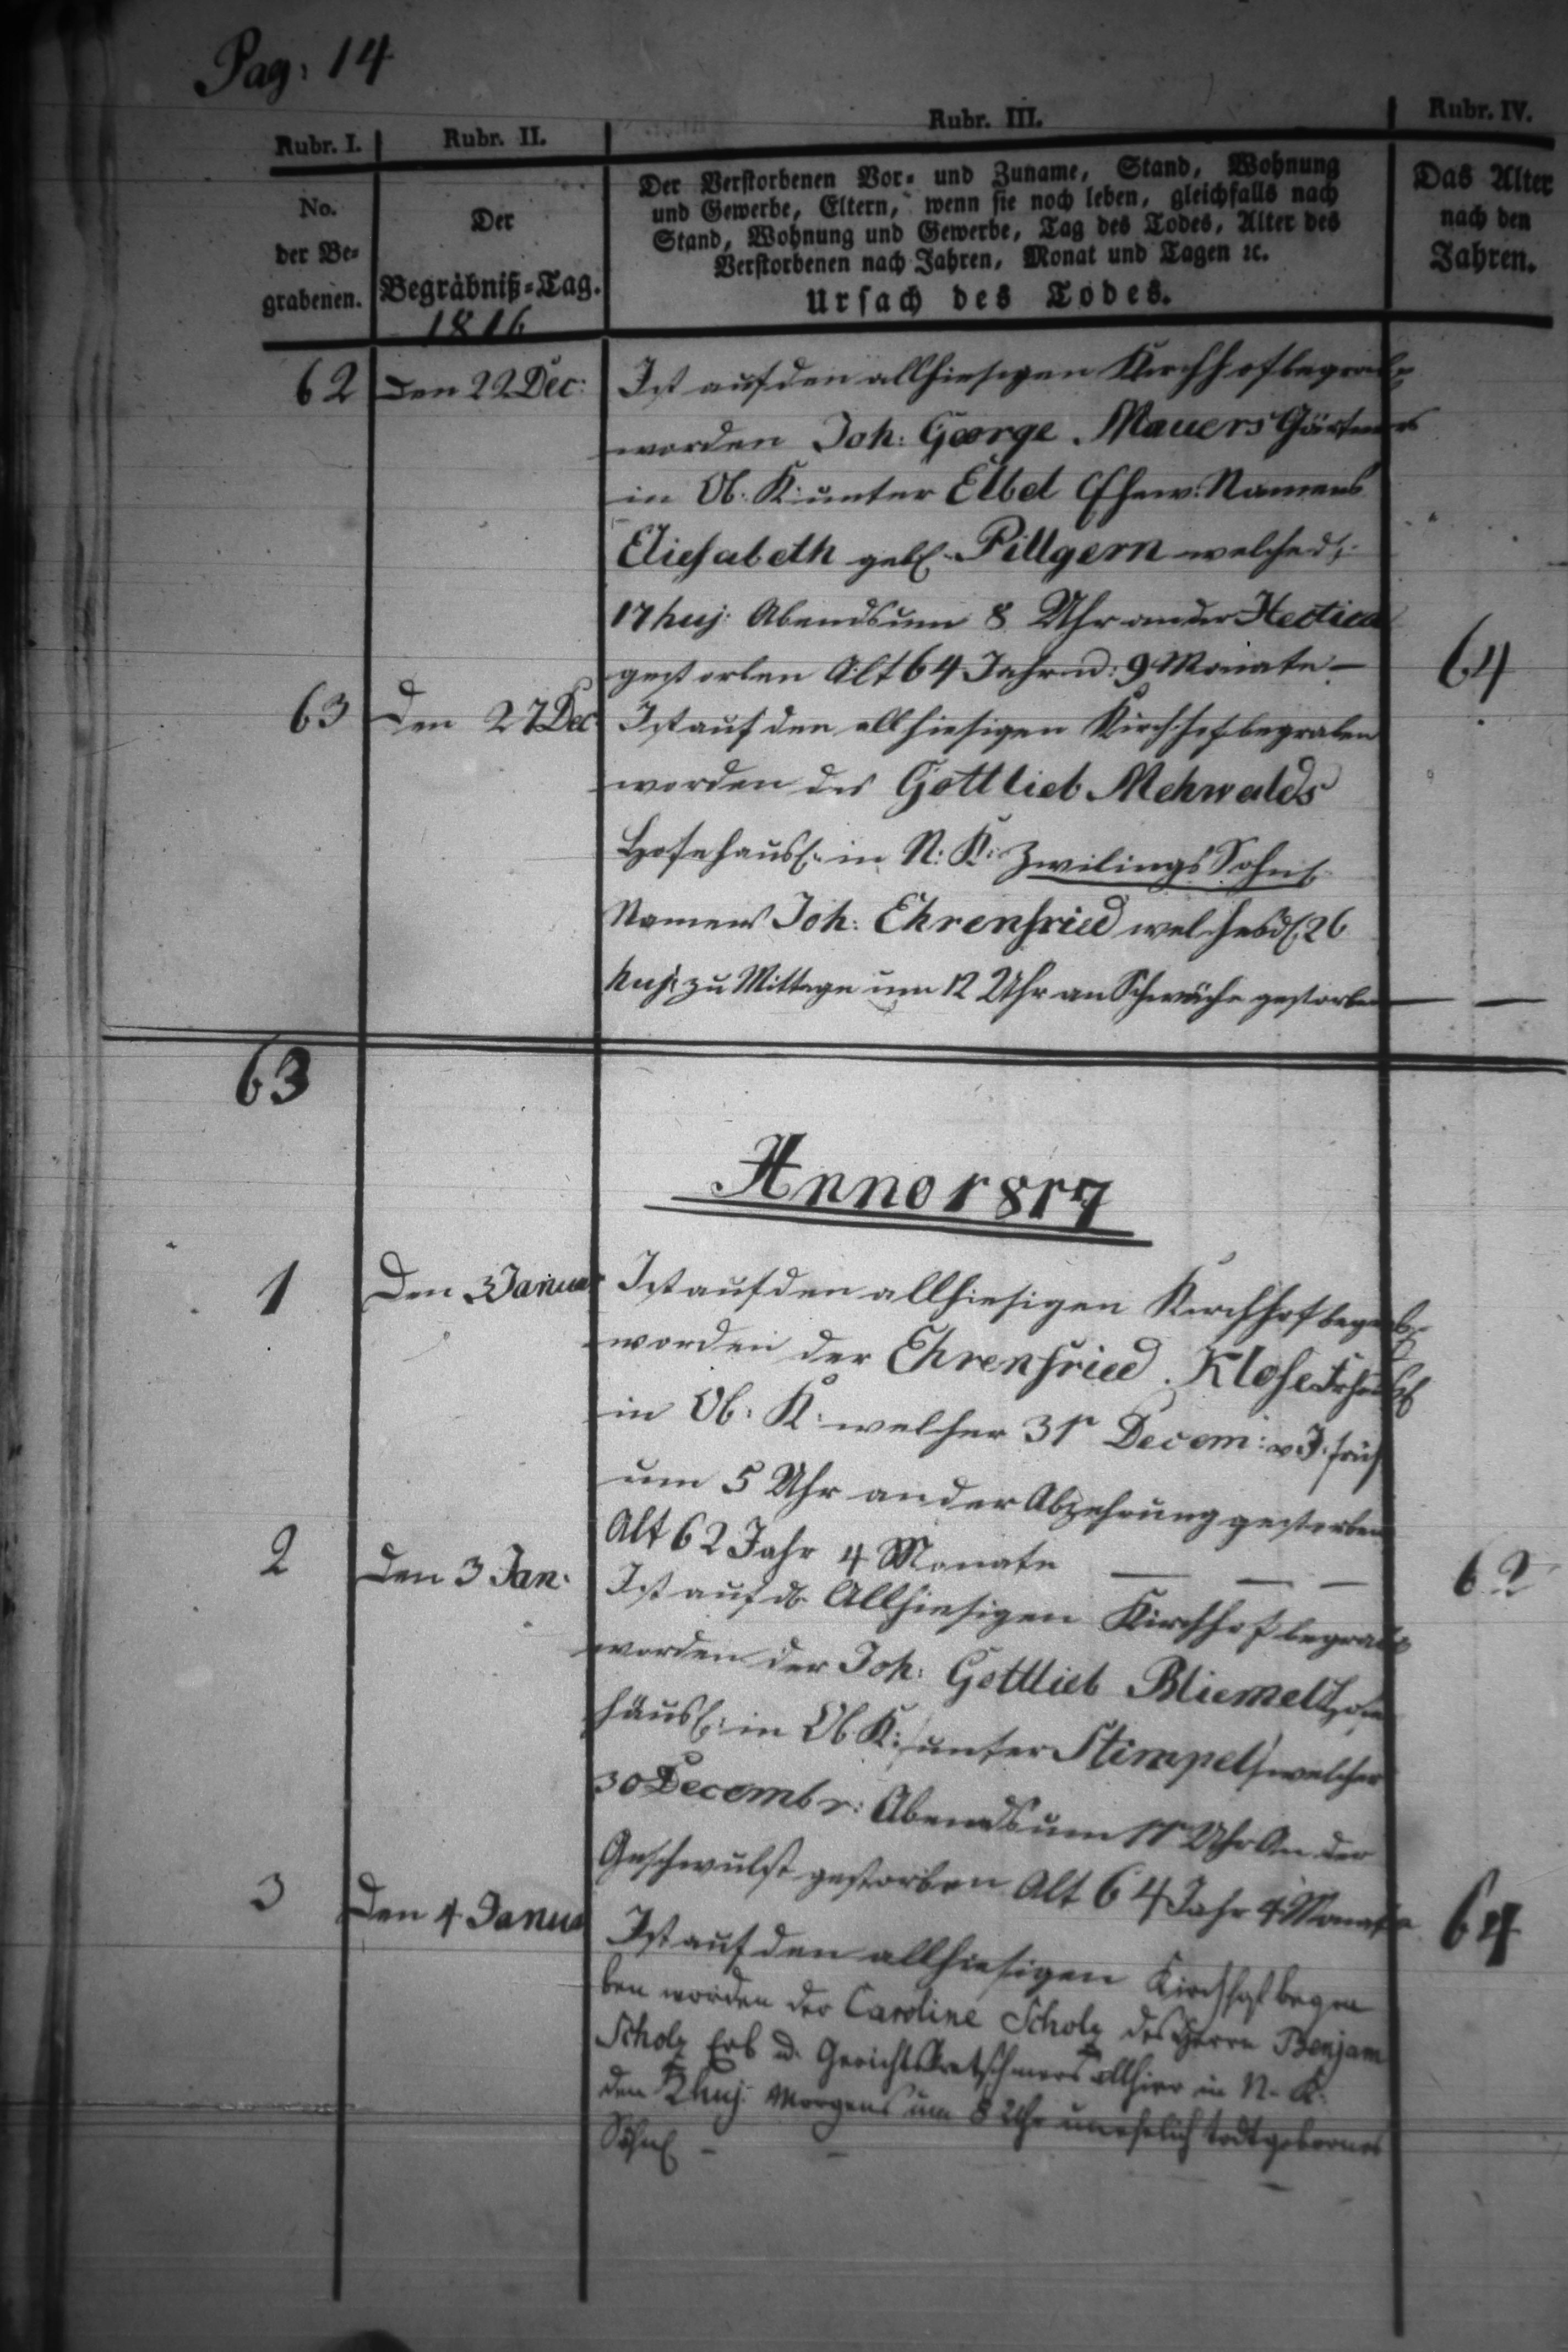 Pag: 14
Rubr. I. Rubr. II. Rubr. III. Rubr. IV.
No.
der Be-
grabenen.
Der
Begräbniß-Tag.
1816
Der Verstorbenen Vor- und Zuname, Stand, Wohnung
und Gewerbe, Eltern, wenn sie noch leben, gleichfalls nach
Stand, Wohnung und Gewerbe, Tag des Todes, Alter des
Verstorbenen nach Jahren, Monat und Tagen ꝛc.
Ursach des Todes.
Das Alter
nach den
Jahren.
62 Den 22 Dec: Ist auf den allhiesigen Kirchhof begrab
worden Joh: George Mauers Gärtners
in Ob: K: unter Elbel Ehew: Namens
Eliesabeth geb. Pillgern welche d.
17 huj: Abends um 8 Uhr an der Hectica
gestorben Alt 64 Jahr u: 9 Monate – 64
63 Den 27 Dec Ist auf den allhiesigen Kirchhof begraben
worden des Gottlieb Mehwalds
Hofehäusl: in N: K: Zwilings Sohnl
Namens Joh: Ehrenfried welches d. 26
huj: zu Mittage um 12 Uhr an Schwäche gestorben — —
63
Anno 1817
1 Den 3 Januar Ist auf den allhiesigen Kirchhof begrab
worden der Ehrenfried Klose
in Ob: K: welcher 31 Decem: v J. früh
um 5 Uhr an der Abzehrung gestorben
Alt 62 Jahr 4 Monate — — — 62
2 Den 3 Jan: Ist auf d. Allhiesigen Kirchhof begrab
worden der Joh: Gottlieb Bliemel
häusl: in Ob. K: unter Stimpel welcher
30 Decembr: Abends um 11 Uhr An der
Geschwulst gestorben Alt 64 Jahr 4 Monate 64
3 Den 4 Janua Ist auf den allhiesigen Kirchhof begra
ben worden der Caroline Scholz des Herrn Benjam
Scholz Erb u. Gerichtskretschmers allhier in N. K.
den 2 huj: Morgens um 8 Uhr unehelich todtgebornes
Söhnl – –